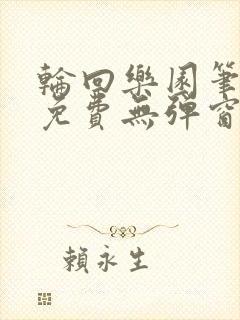 輪回樂園筆
免費無彈窗
賴永生